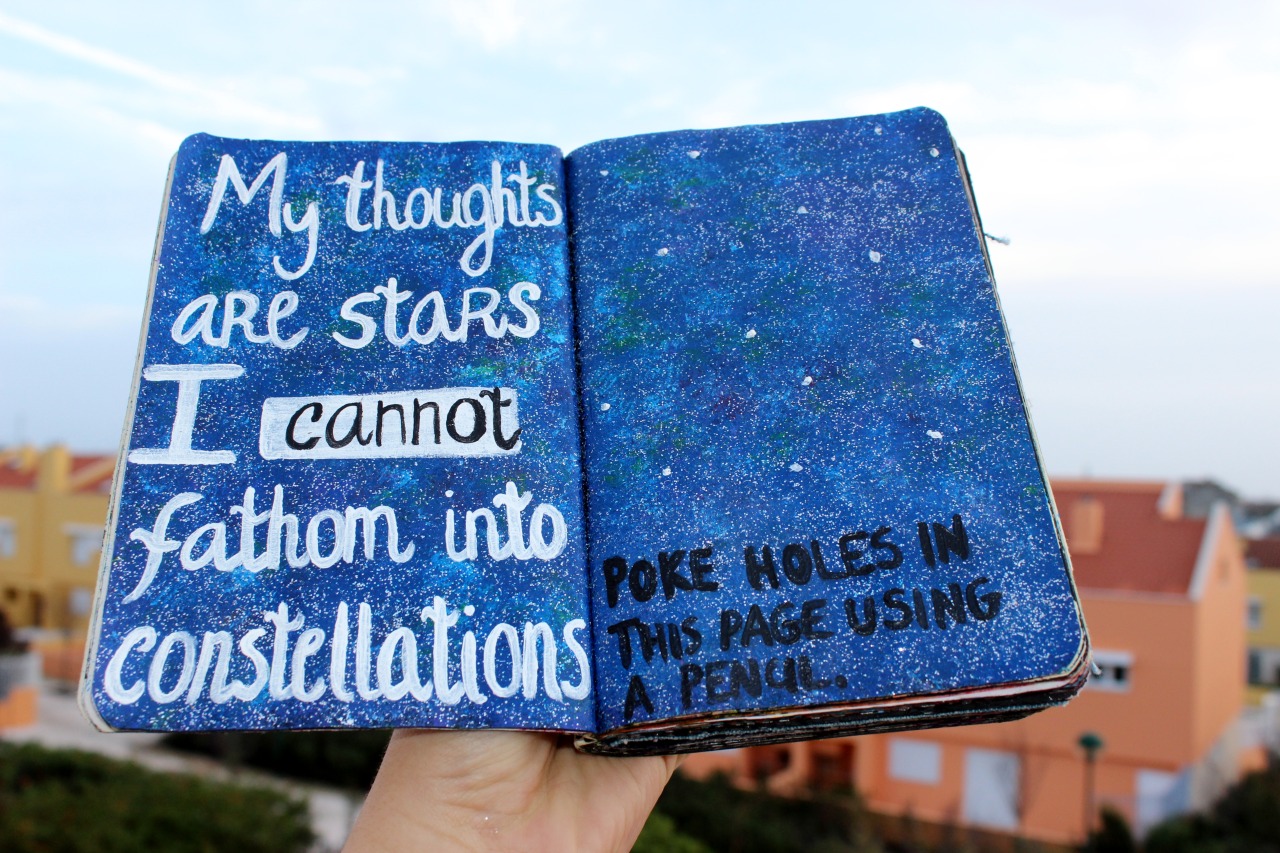 My thoughts
are stars
I cannot
fathom into
constellations
POKE HOLES IN
THIS PAGE USING
A PENCIL.